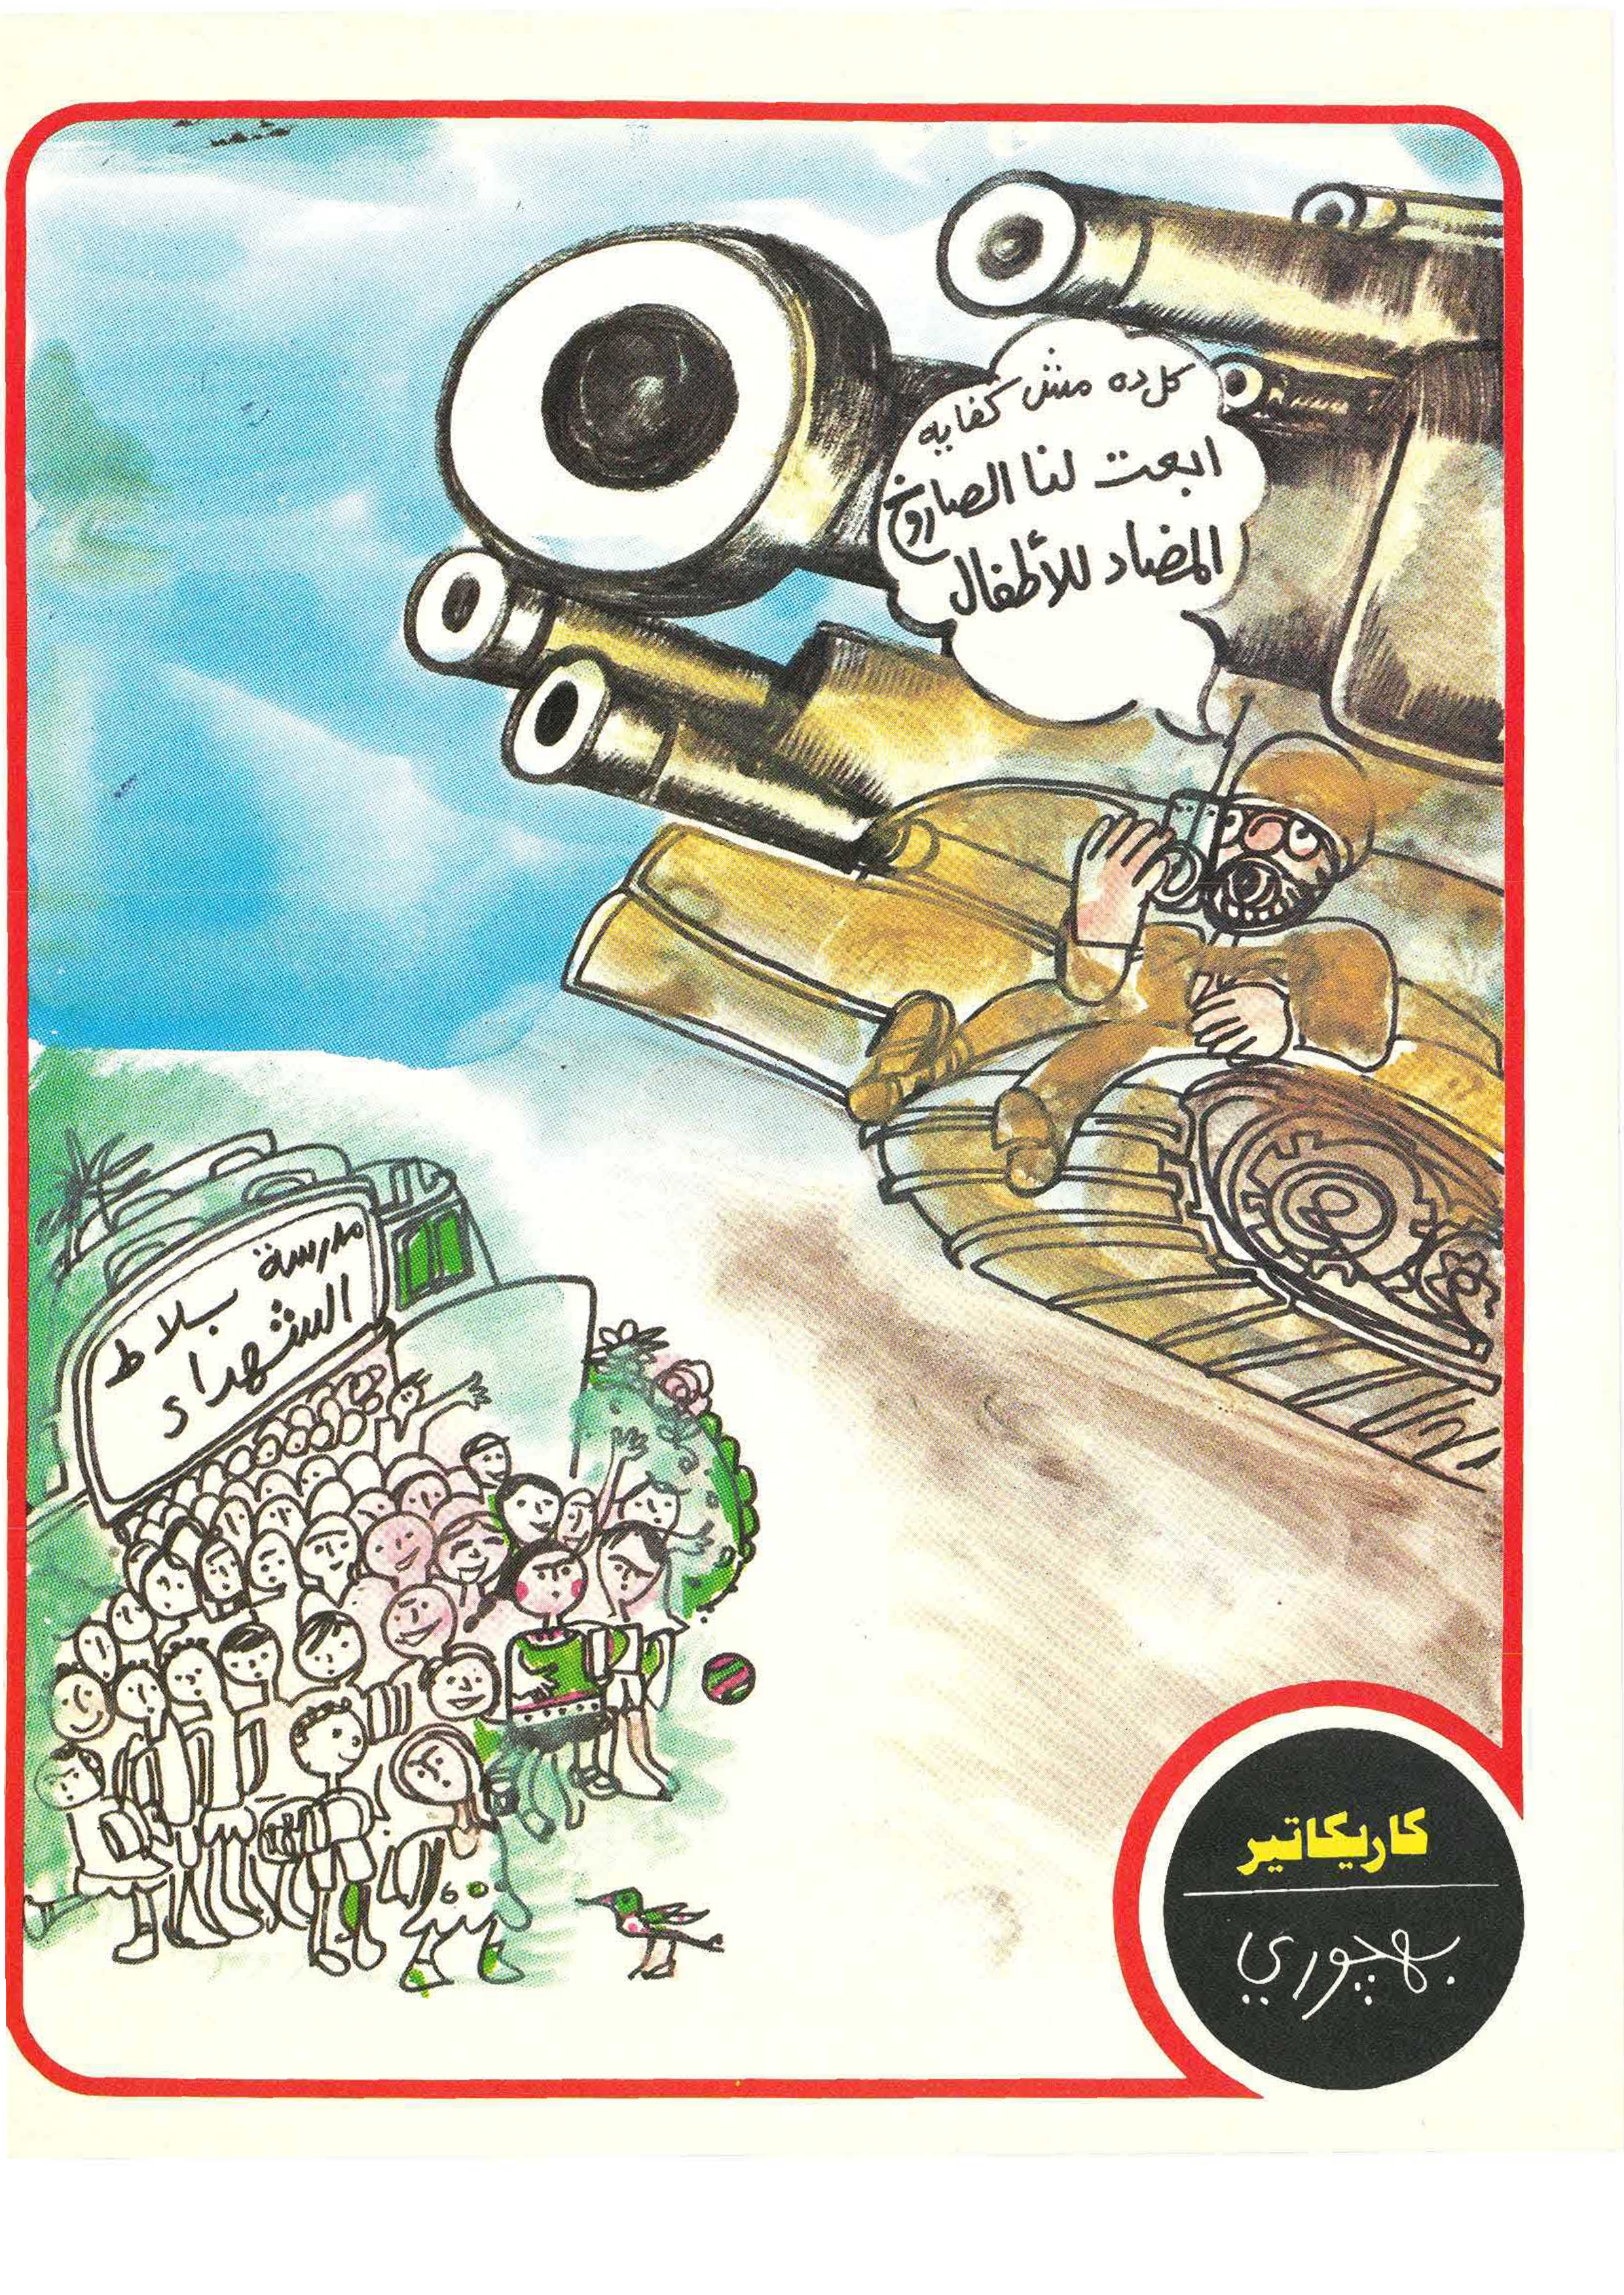 كل ده مش كفايه
ابعت لنا الصاروخ
المضاد للأطفال
مدرسة بلاط
الشهداء
كاريكاتير
بهجوري